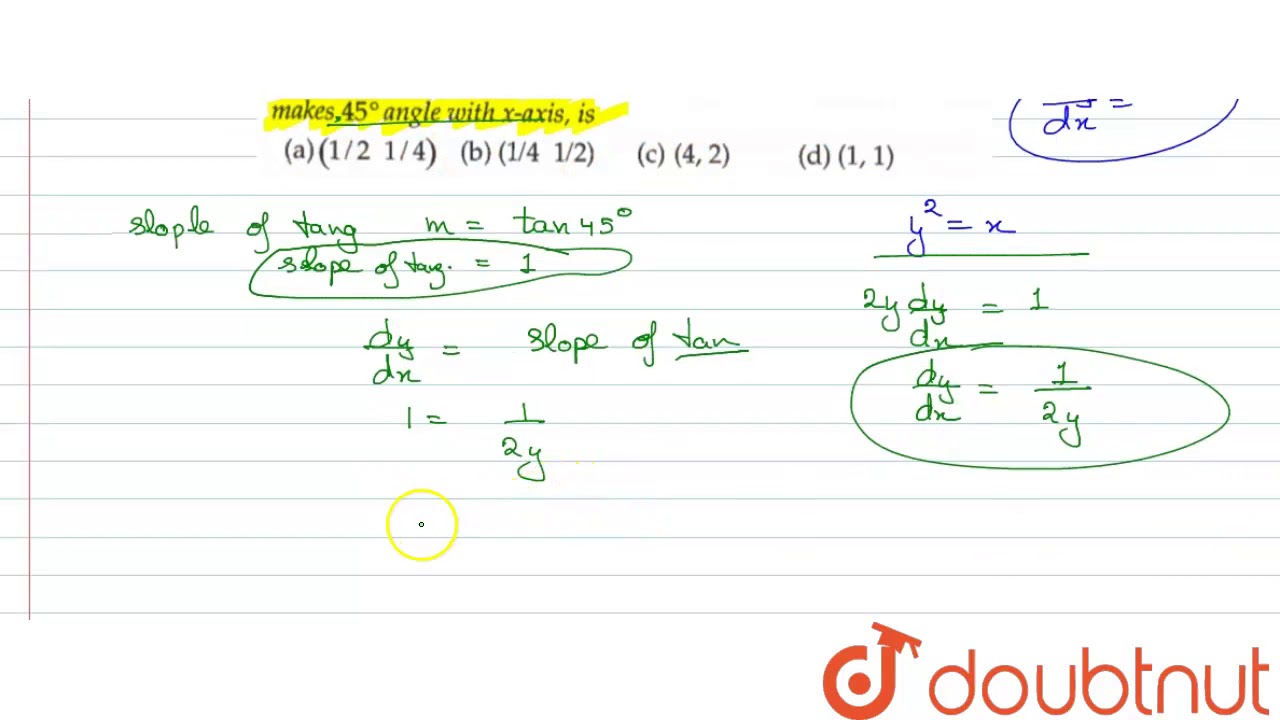 makes 45° angle with x-axis, is
(a) (1/2 1/4) (b) (1/4 1/2) (c) (4, 2) (d) (1, 1)
dx =
slople of tang m = tan 45°
slope of tang. = 1
dy/dx = slope of tan
1 = 1/2y
y² = x
2y dy/dx = 1
dy/dx = 1/2y
doubtnut